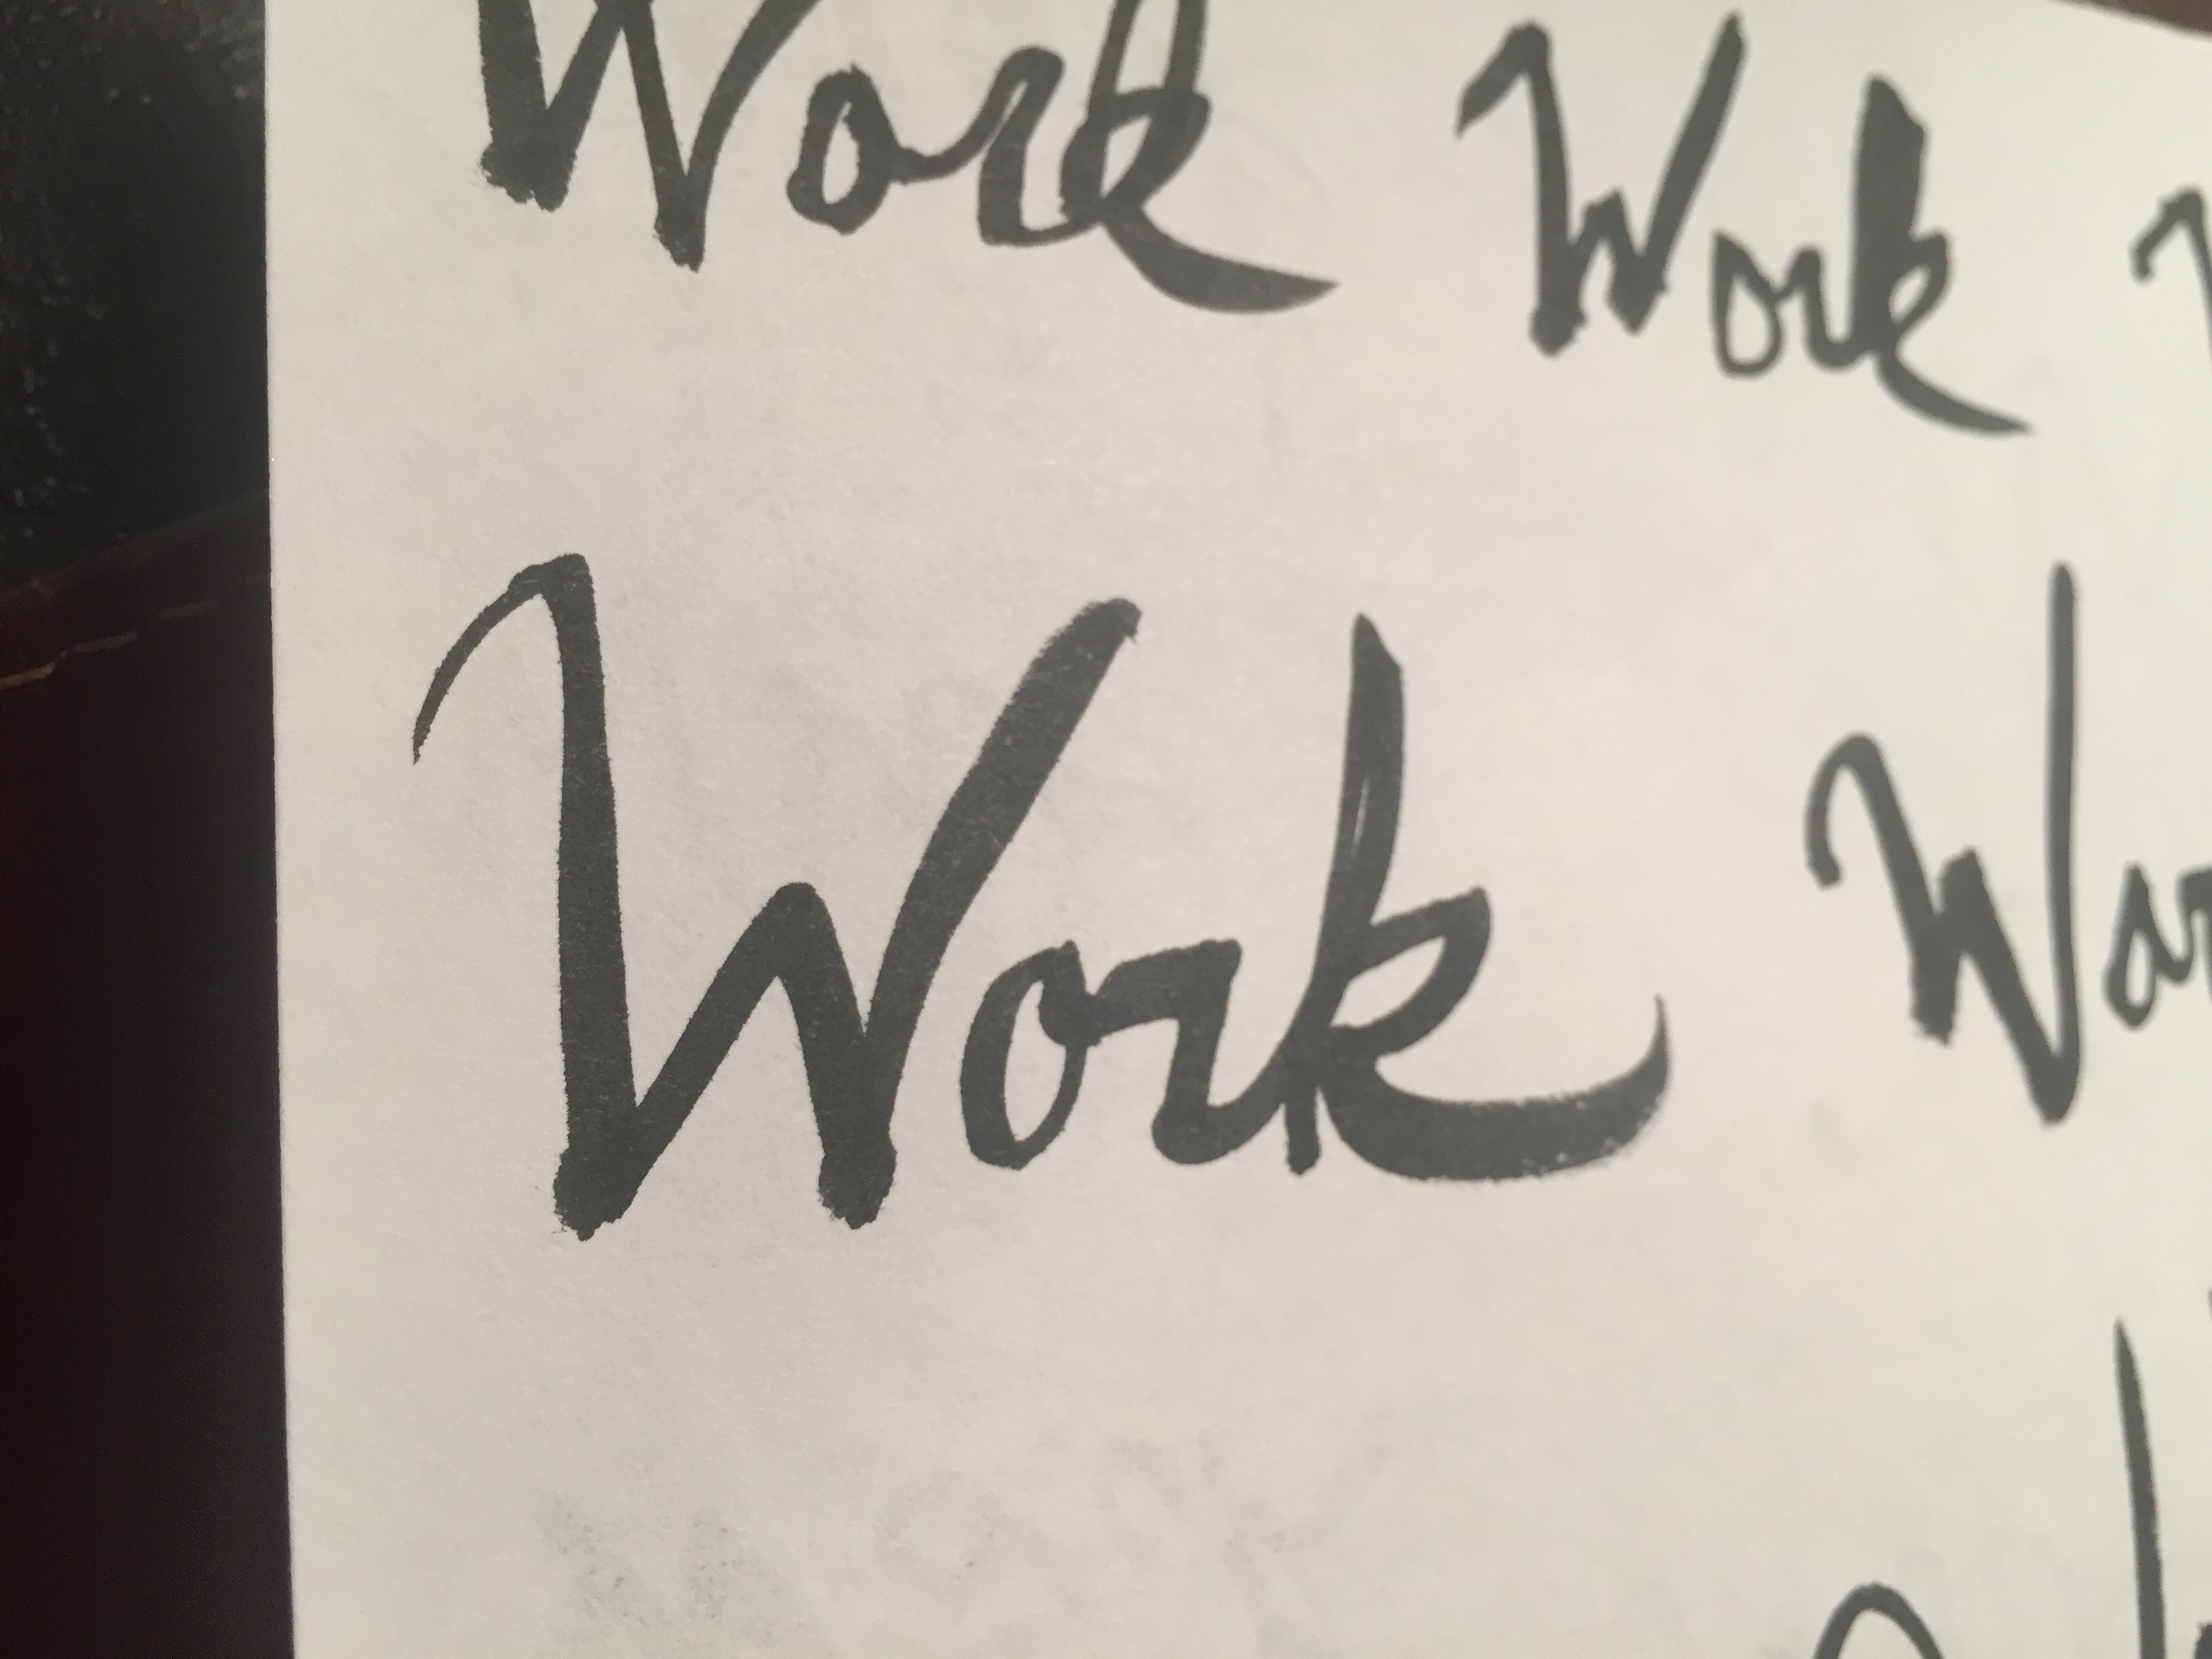 Work Work
Work